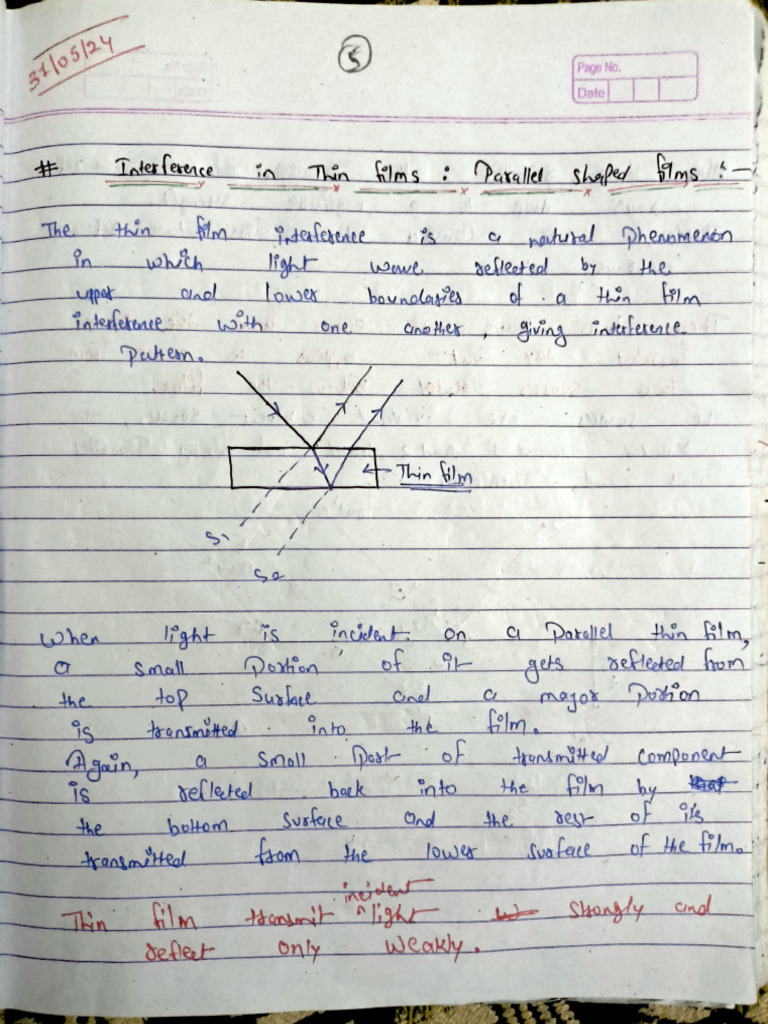 31/05/24
5
Page No.
Date
# Interference in Thin films : Parallel shaped films :-
The thin film interference is a natural phenomenon
in which light wave reflected by the
upper and lower boundaries of a thin film
interference with one another, giving interference
pattern.
Thin film
S1
S2
When light is incident on a Parallel thin film,
a small portion of it gets reflected from
the top surface and a major portion
is transmitted into the film.
Again, a small part of transmitted component
is reflected back into the film by
the bottom surface and the rest of it's
transmitted from the lower surface of the film.
Thin film transmit incident light strongly and
reflect only weakly.